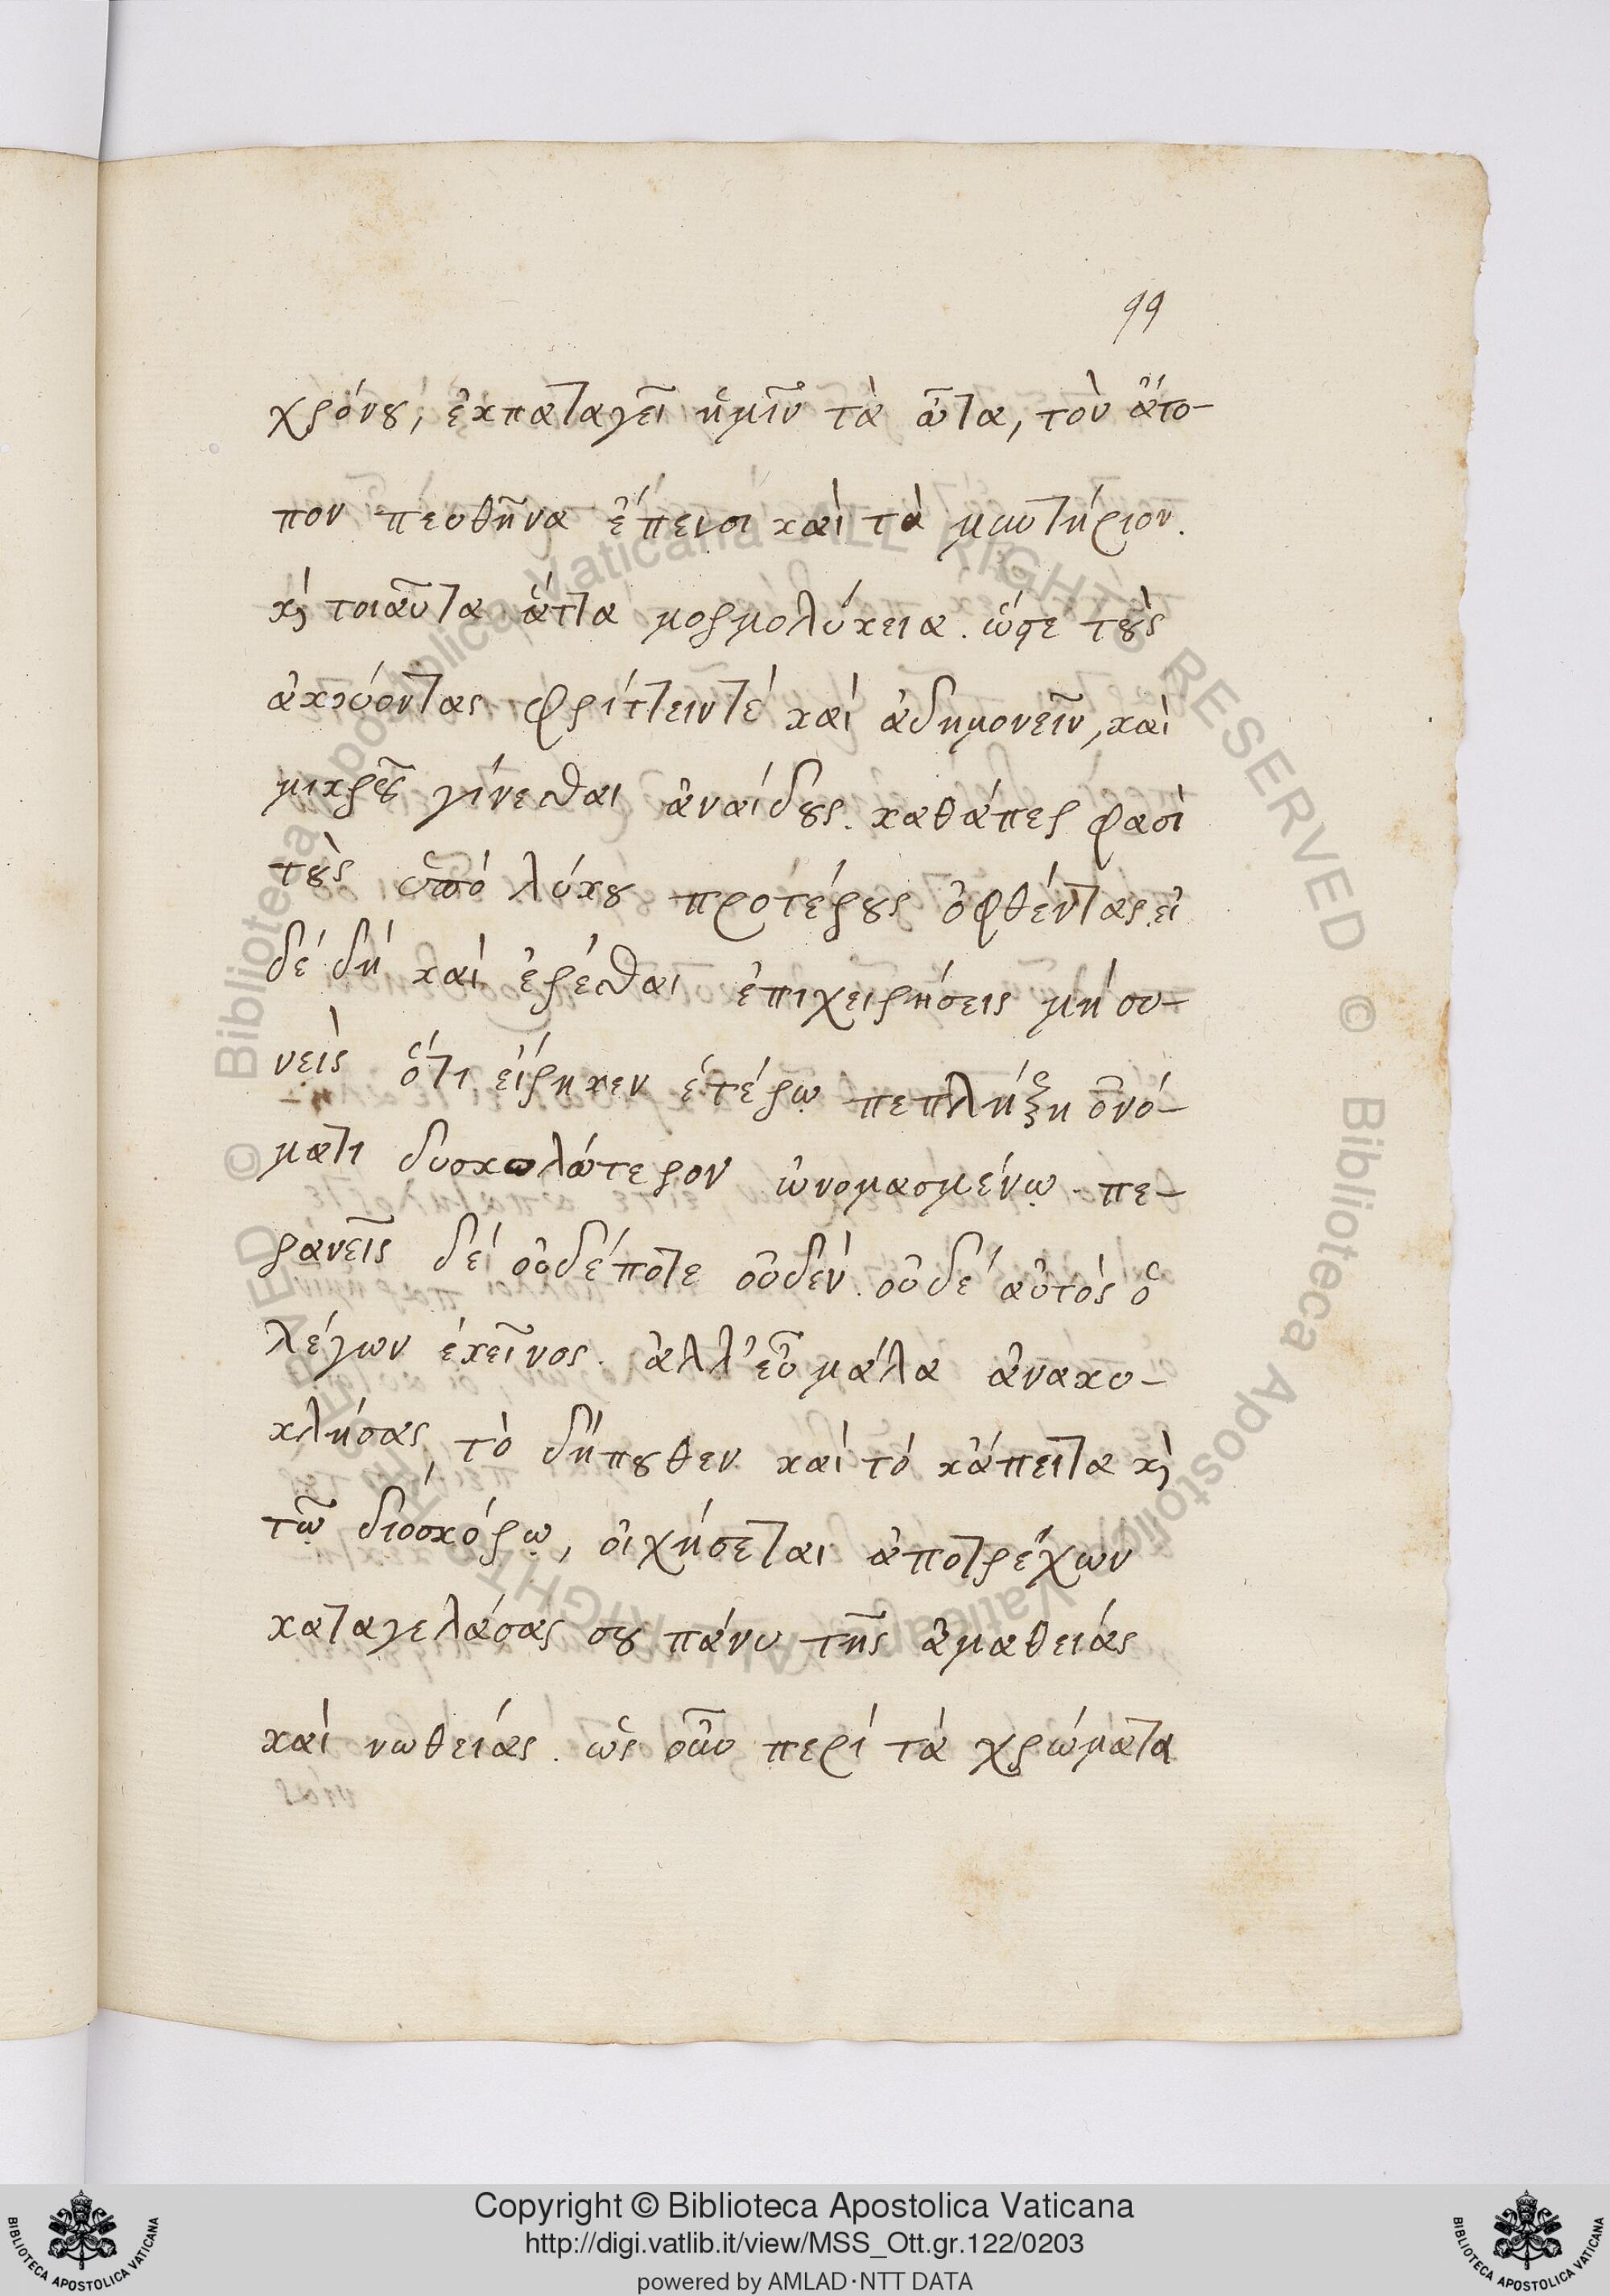 99
χρόνου, ἐκπαταγεῖ ἡμῖν τὰ ὦτα, τὸν ἄτο-
πον πευθῆνα ἔπεισι καὶ τὰ μυστήριον.
κὶ τοιαῦτα ἄττα μορμολύκεια. ὥστε τοὺς
ἀκούοντας φρίττειντέ καὶ ἀδημονεῖν, καὶ
μικροῦ γίνεσθαι ἀναίδους. καθάπερ φασὶ
τοὺς ὑπό λύκου προτέρους ὀφθέντας. εἰ
δέ δή καὶ ἐρέσθαι ἐπιχειρήσεις μή συ-
νεὶς ὅτι εἴρηκεν ἑτέρῳ πεπλήξη ὀνό-
ματι δυσκολώτερον ὠνομασμένῳ. πε-
ρανεῖς δέ οὐδέποτε οὐδέν. οὐδέ αὐτὸς ὁ
λέγων ἐκεῖνος. ἀλλ' εὖ μάλα ἀνακυ-
κλήσας, τὸ δήπουθεν καὶ τό κἄπειτα κὶ
τῷ διοσκόρῳ, οἰχήσεται ἀποτρέχων
καταγελάσας σου πάνυ τῆς ἀμαθείας
καὶ νωθείας. ὡς οὖν περί τὰ χρώματα
Copyright © Biblioteca Apostolica Vaticana
http://digi.vatlib.it/view/MSS_Ott.gr.122/0203
powered by AMLAD·NTT DATA
BIBLIOTECA APOSTOLICA VATICANA
BIBLIOTECA APOSTOLICA VATICANA
© Biblioteca Apostolica Vaticana ALL RIGHTS RESERVED © Biblioteca Apostolica Vaticana ALL RIGHTS RESERVED